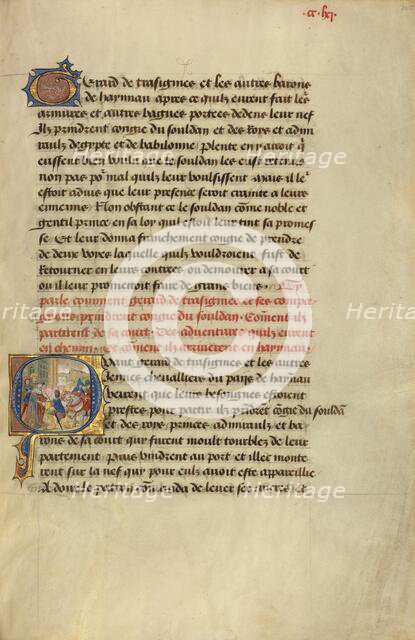 .cc. lxj.
Gerard de trasignies et les autres barons
de haynnau apres ce quilz eurent fait leurs
armures et autres bagues porter dedens leur nef
Ilz prindrent congie du souldan et des roys et admi
raulz degypte et de babilonne Plente en y avoit qui
eussent bien voulu que le souldan les eust retenus
non pas pour mal quilz leur voulsissent Mais il leur
estoit advis que leur presence seroit crainte a leurs
ennemis Non obstant ce le souldan comme noble et
gentil prince en sa loy quil estoit leur tint sa promes
se Et leur donna franchement congie de prendre
de deux voyes laquelle quilz vouldroient fust de
Retourner en leurs contrees ou demourer a sa court
ou il leur promettoit faire de grans biens Cy
parle comment gerard de trasignies et ses compai
gnons prindrent congie du souldan Comment ilz
partirent de sa court Des adventures quilz eurent
en chemin et comment ilz arriverent en haynnau
Quant gerard de trasignies et les autres
chevalliers du pays de haynau
veirent que leurs besongnes estoient
prestes pour partir ilz prirent congie du souldan
et des roys princes admiraulz et ba
rons de sa court qui furent moult tourblez de leur
partement Puis vindrent au port et illec monte
rent sur la nef qui pour eulz avoit este appareillie
Adont le patron commanda de lever ses ancres et
Heritage
Images